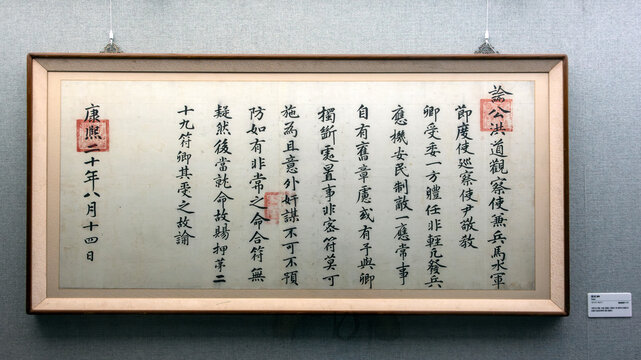 諭公洪道觀察使兼兵馬水軍
節度使巡察使尹敬教
卿受委一方體任非輕凡發兵
應機安民制敵一應常事
自有舊章慮或有予與卿
獨斷處置事非密符莫可
施為且意外奸謀不可不預
防如有非常之命合符無
疑然後當就命故賜押第二
十九符卿其受之故諭
康熙二十年八月十四日